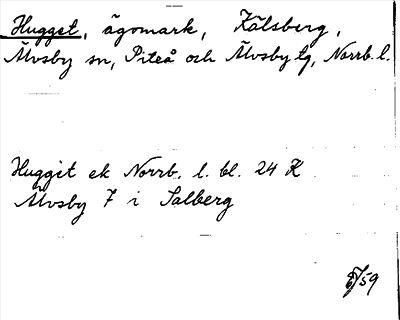 Hugget, ägomark, Kälsberg,
Älvsby sn, Piteå och Älvsby tg, Norrb. l.
Huggit ek Norrb. l. bl. 24 K
Älvsby 7 i Salberg
/59